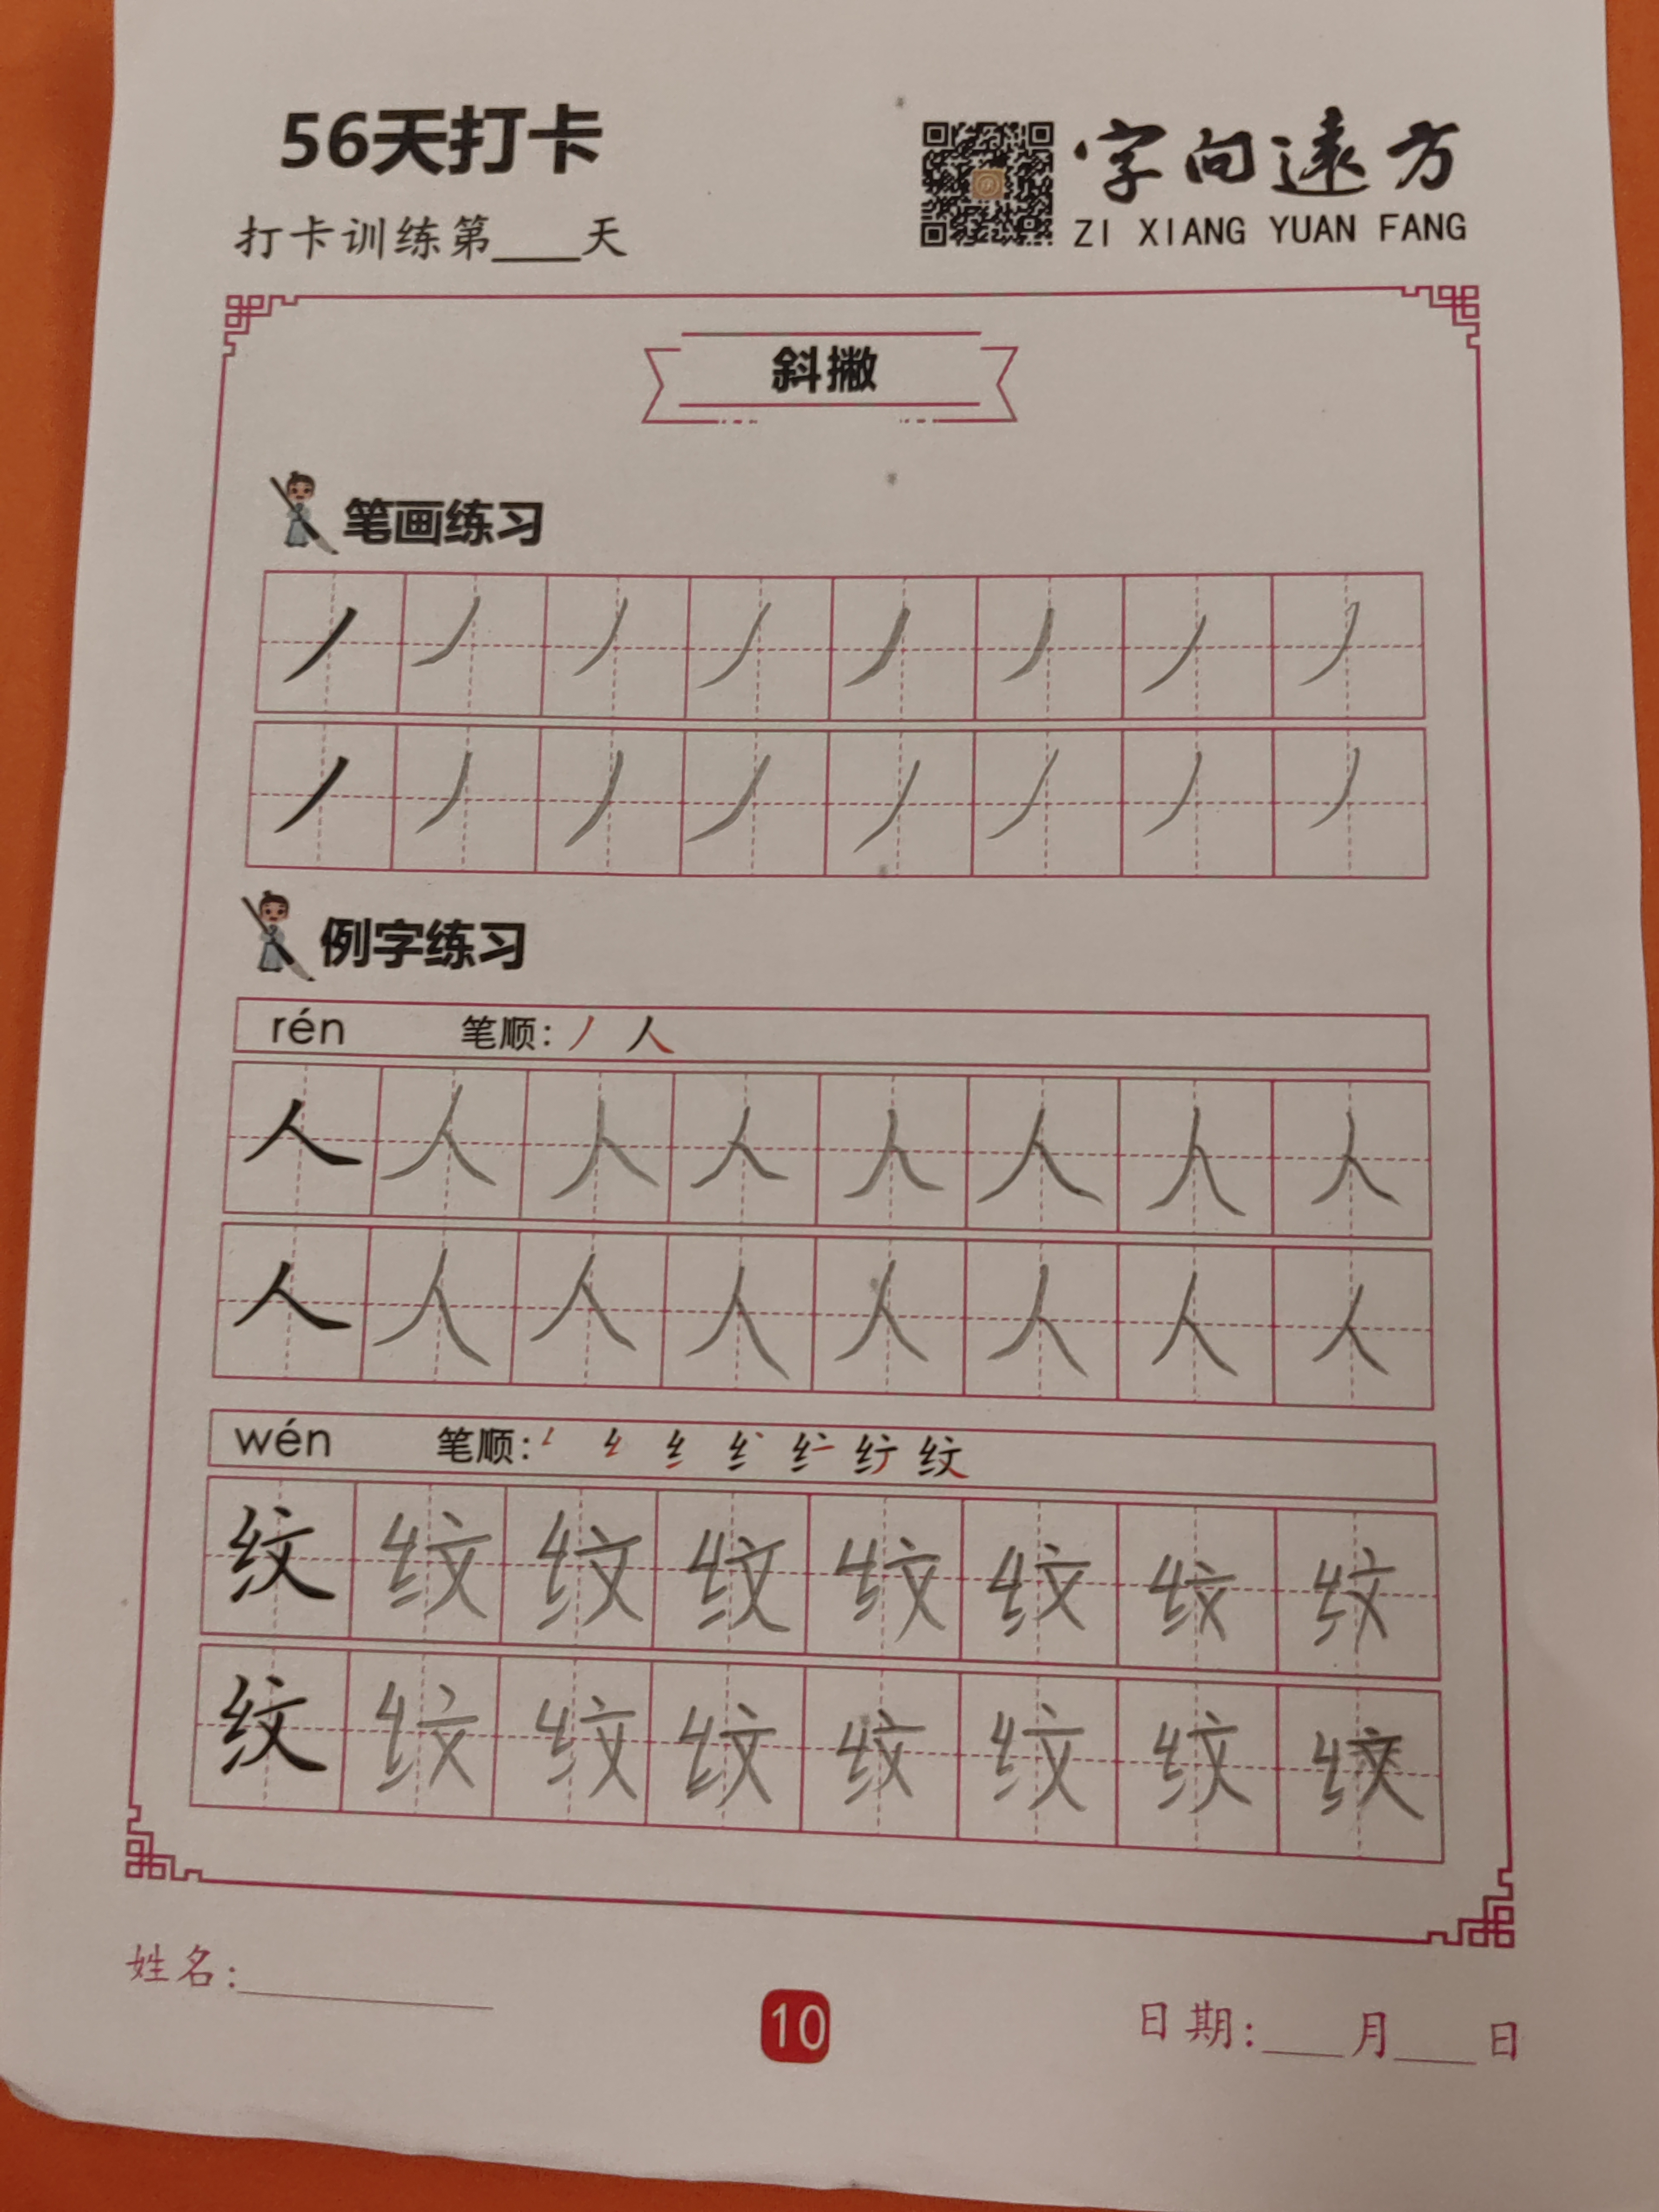 56天打卡
字向远方
打卡训练第____天
ZI XIANG YUAN FANG
斜撇
笔画练习
丿丿丿丿丿丿丿丿
丿丿丿丿丿丿丿丿
例字练习
rén 笔顺: 丿 人
人人人人人人人人
人人人人人人人人
wén 笔顺: 纹
纹纹纹纹纹纹纹纹
纹纹纹纹纹纹纹纹
姓名:__________
10
日期:___月___日